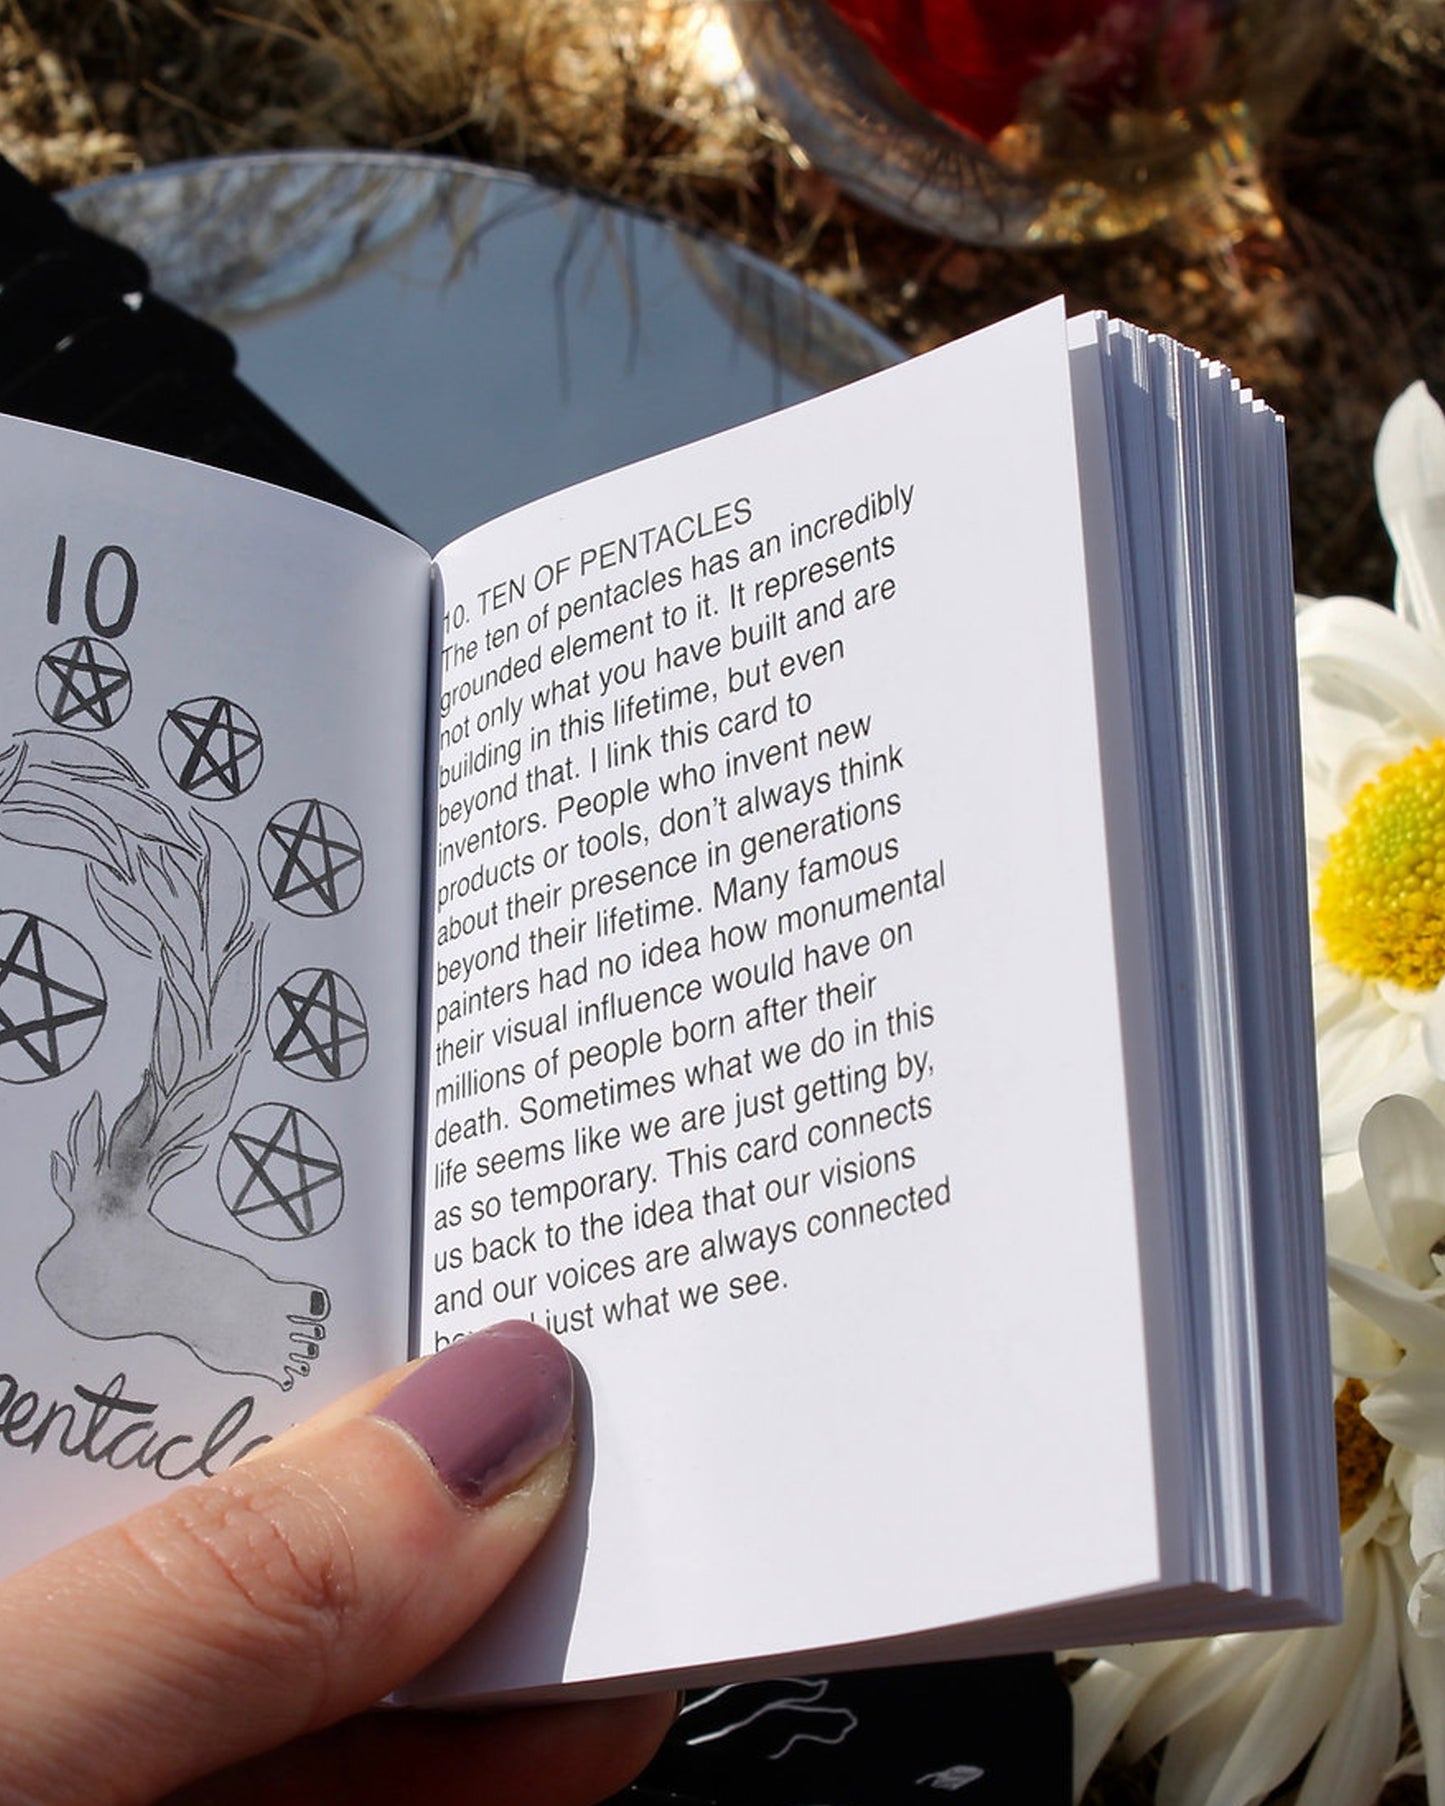 10
pentacle
10. TEN OF PENTACLES
The ten of pentacles has an incredibly
grounded element to it. It represents
not only what you have built and are
building in this lifetime, but even
beyond that. I link this card to
inventors. People who invent new
products or tools, don't always think
about their presence in generations
beyond their lifetime. Many famous
painters had no idea how monumental
their visual influence would have on
millions of people born after their
death. Sometimes what we do in this
life seems like we are just getting by,
as so temporary. This card connects
us back to the idea that our visions
and our voices are always connected
just what we see.